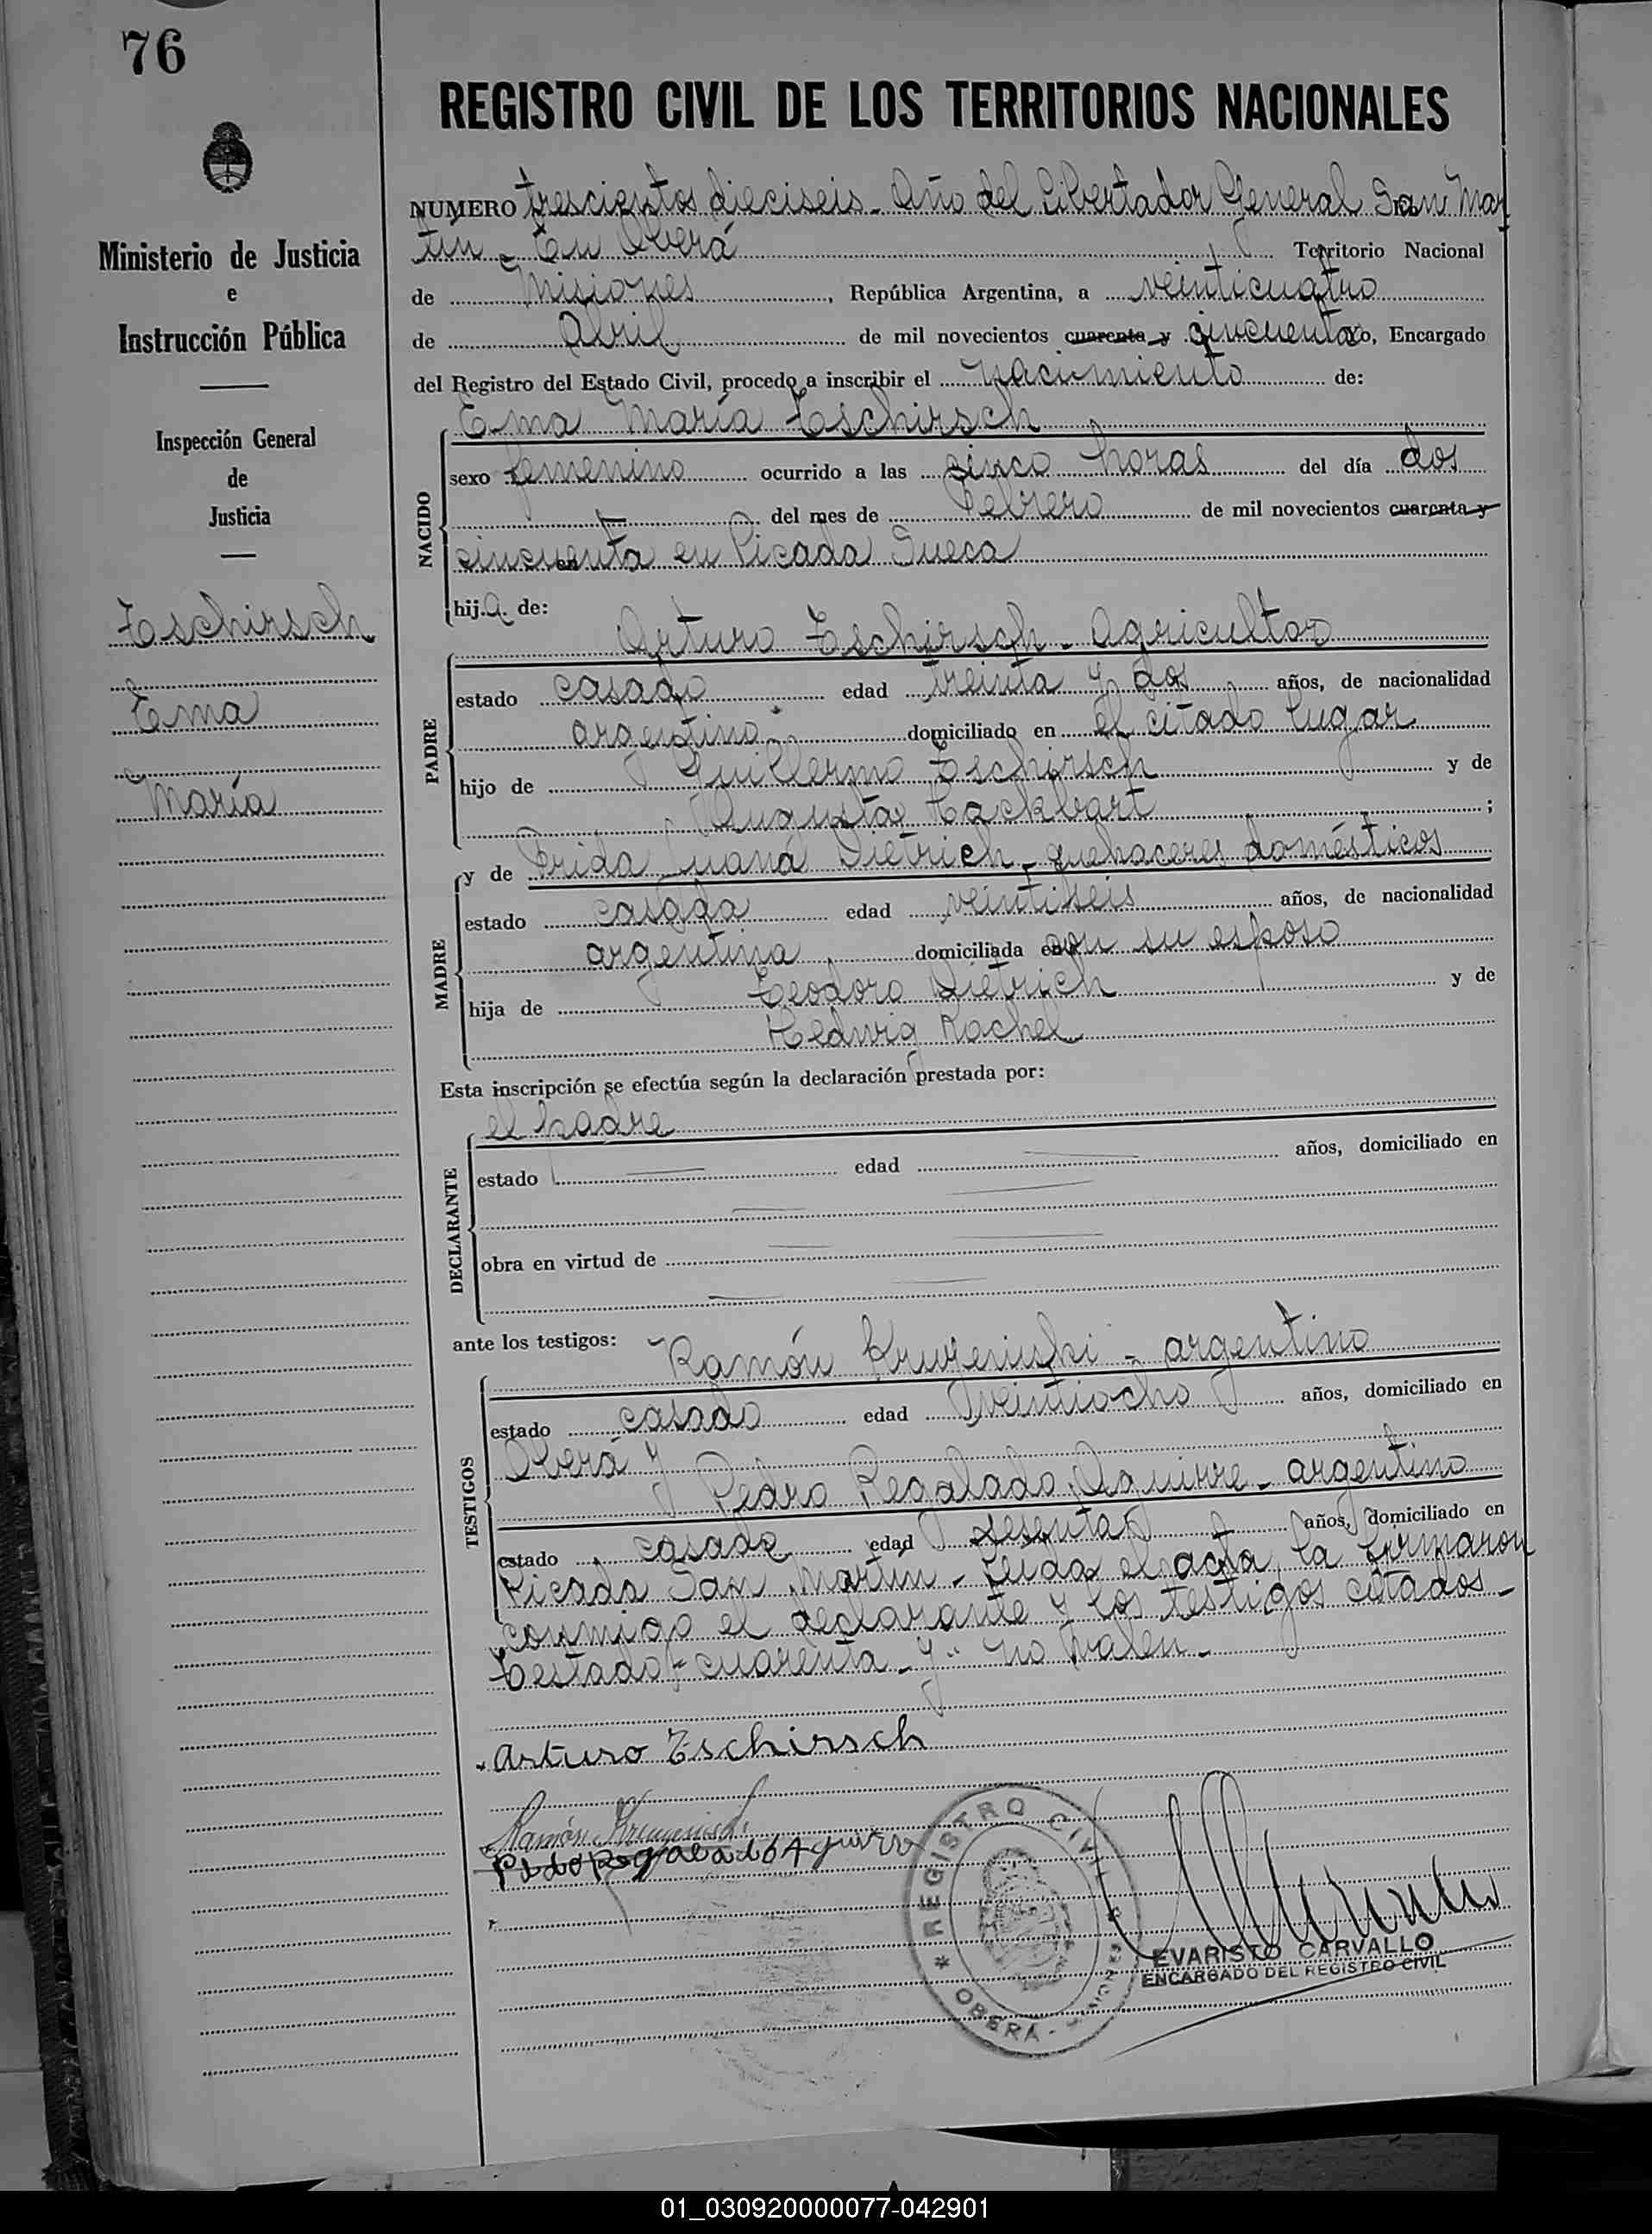 76
REGISTRO CIVIL DE LOS TERRITORIOS NACIONALES
Ministerio de Justicia
e
Instrucción Pública
Inspección General
de
Justicia
Tschirsch
Ema
María
NUMERO trescientos dieciseis - Año del Libertador General San Mar
tín - En Oberá Territorio Nacional
de Misiones, República Argentina, a veinticuatro
de Abril de mil novecientos cuarenta y cincuenta yo, Encargado
del Registro del Estado Civil, procedo a inscribir el nacimiento de:
Ema María Tschirsch
NACIDO
sexo femenino ocurrido a las cinco horas del día dos
del mes de Febrero de mil novecientos cuarenta y
cincuenta en Picada Sueca
hij.a. de:
Arturo Tschirsch - Agricultor
PADRE
estado casado edad treinta y dos años, de nacionalidad
argentino domiciliado en el citado lugar
hijo de Guillermo Tschirsch y de
Augusta Hackbart ;
y de Frida Juana Dietrich - quehaceres domésticos
MADRE
estado casada edad veintiseis años, de nacionalidad
argentina domiciliada en con su esposo
hija de Teodoro Dietrich y de
Hedwig Rochel
Esta inscripción se efectúa según la declaración prestada por:
el padre
DECLARANTE
estado edad años, domiciliado en
obra en virtud de
ante los testigos:
Ramón - argentino
TESTIGOS
estado casado edad veintiocho años, domiciliado en
Oberá y
Pedro Regalado Aguirre - argentino
estado casado edad sesenta años, domiciliado en
Picada San Martín - Leída el acta, la firmaron
conmigo el declarante y los testigos citados -
Testado - cuarenta - y" no valen -
Arturo Tschirsch
Ramón
Pedo Regalado Aguirre
REGISTRO CIVIL
OBERA -
EVARISTO CARVALLO
ENCARGADO DEL REGISTRO CIVIL
01_030920000077-042901